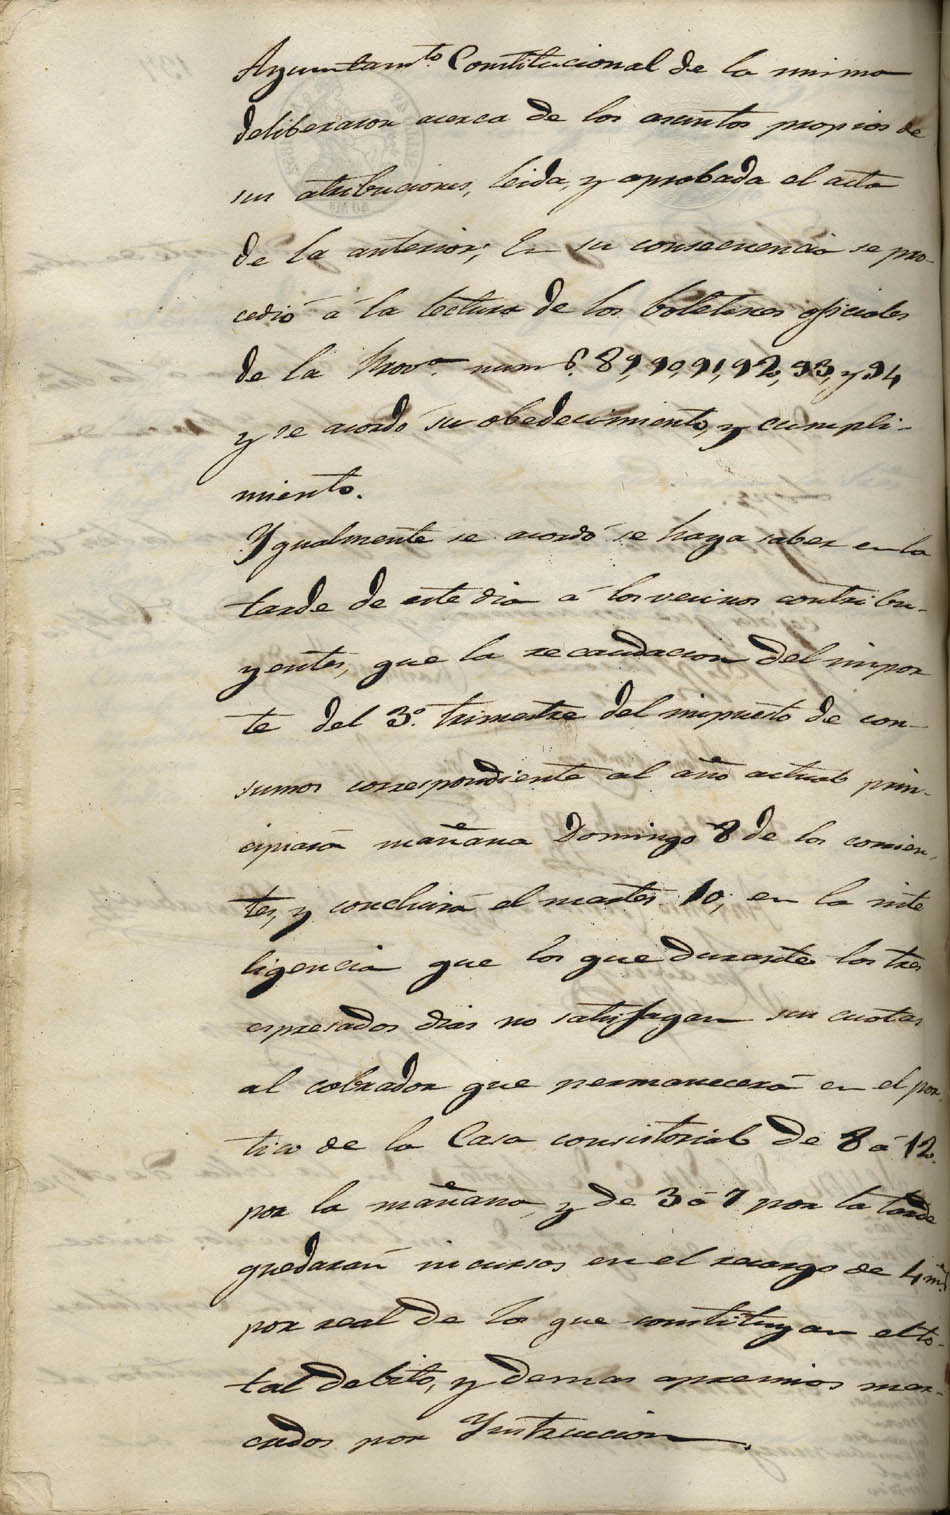 Ayuntamto. Constitucional de la misma
deliberaron acerca de los asuntos propios de
sus atribuciones, leida, y aprobada el acta
de la anterior; En su consecuencia se pro-
cedió á la lectura de los boletines oficiales
de la Prova. num s. 89, 90, 91, 92, 93, y 94
y se acordó su obedecimiento, y cumpli-
miento.
Ygualmente se acordó se haga saber en la
tarde de este dia á los vecinos contribu-
yentes, que la recaudacion del impor
te del 3o. trimestre del impuesto de con-
sumos correspondiente al año actual prin-
cipiará mañana Domingo 8 de los corrien-
tes, y concluirá el martes 10, en la inte
ligencia que los que durante los tres
espresados dias no satisfagan sus cuotas
al cobrador que permanecerá en el por-
tico de la Casa consistorial de 8 á 12
por la mañana, y de 3 á 7 por la tarde
quedarán incursos en el recargo de 4 ms.
por real de lo que constituyan el to-
tal debito, y demas apremios mar-
cados por Ynstruccion.